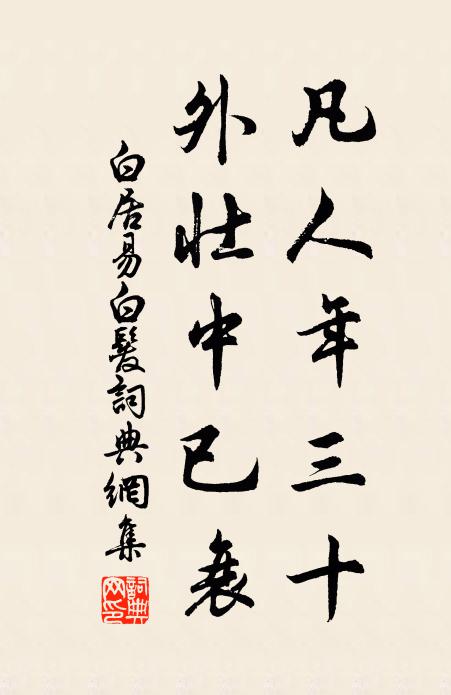 凡人年三十
外壯中已衰
白居易白髮詞典網集
詞典网印